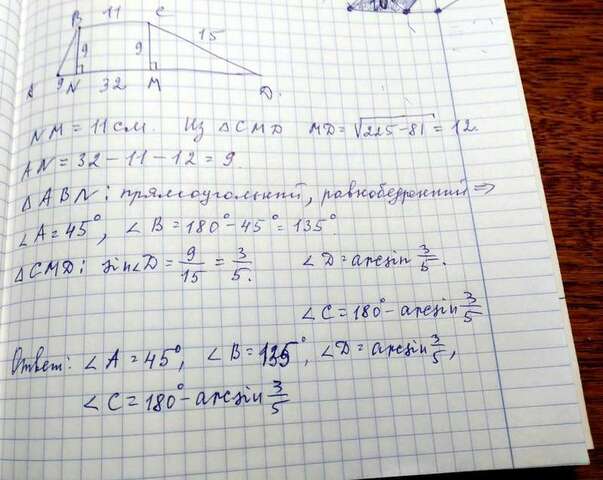 11
B C
9 9 15
A 9 N 32 M D.
NM = 11 см. Из △CMD MD = √225-81 = 12.
AN = 32 - 11 - 12 = 9.
△ABN: прямоугольный, равнобедренный ⇒
∠A = 45°, ∠B = 180° - 45° = 135°
△CMD: sin∠D = 9/15 = 3/5. ∠D = arcsin 3/5.
∠C = 180° - arcsin 3/5
Ответ: ∠A = 45°, ∠B = 135°, ∠D = arcsin 3/5,
∠C = 180° - arcsin 3/5